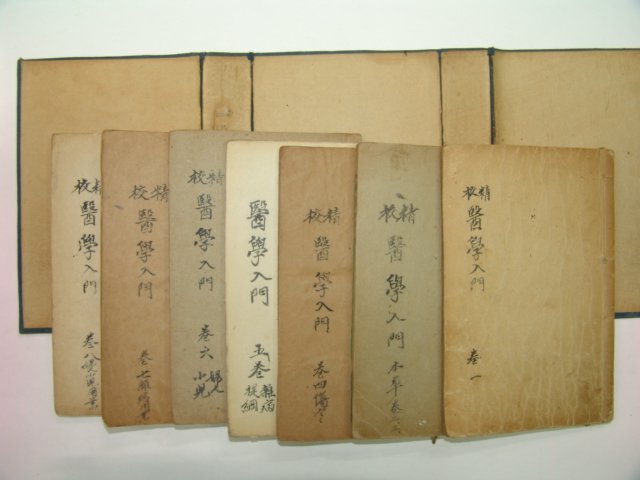 精校
醫學入門
卷一
精校
醫學入門
本草卷二三
精校
醫學入門
卷四傷寒
醫學入門
五卷
雜病
提綱
精校
醫學入門
卷六
婦人
小兒
精校
醫學入門
卷七
精校
醫學入門
卷八